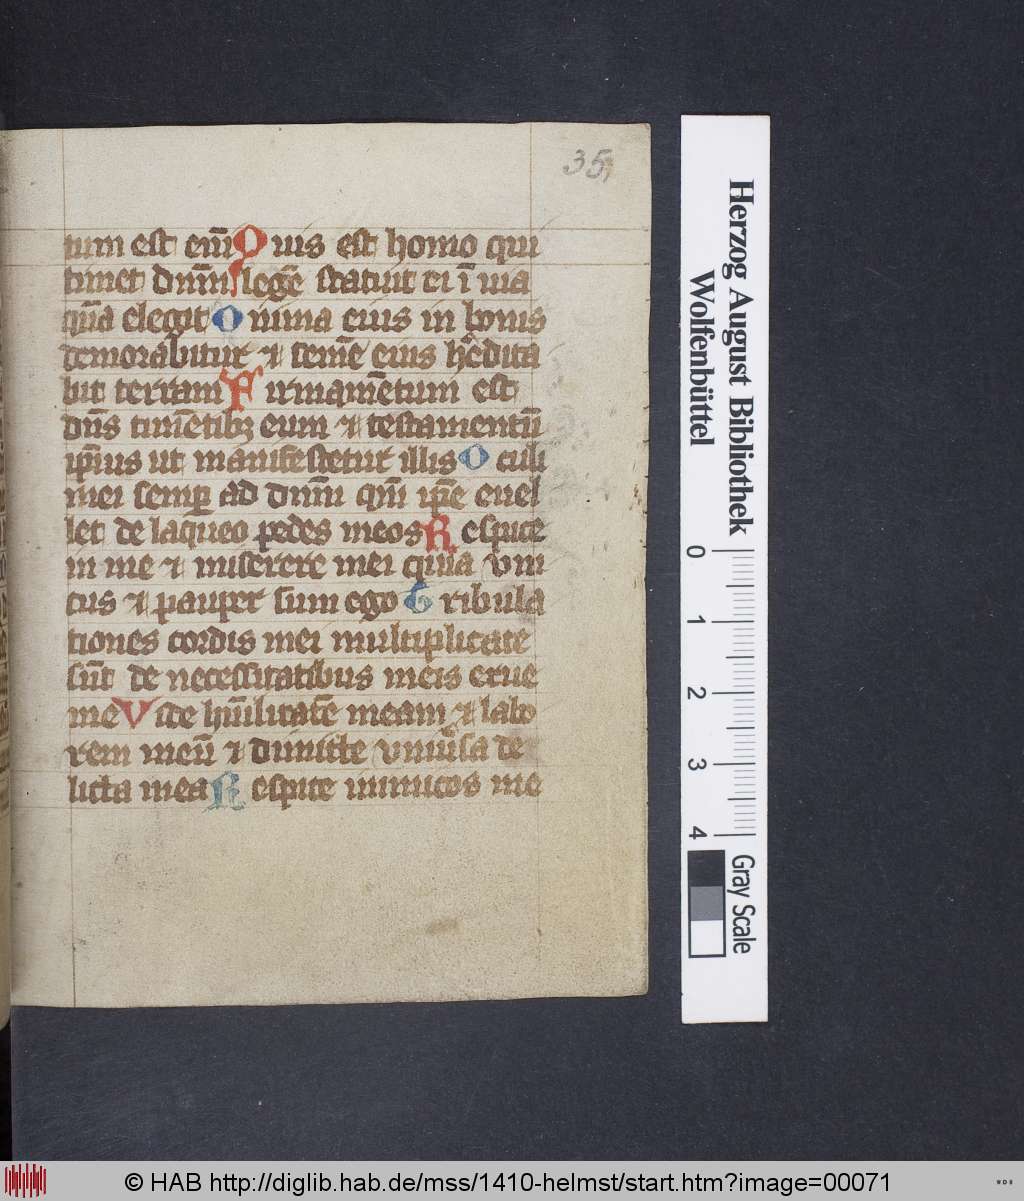 35
tum est eni̅ Quis est homo qui
timet dn̅m lege̅ statuit ei i̅ uia
qua̅ elegit Anima eius in bonis
demorabitur ⁊ seme̅ eius h̅edita
bit terram Firmame̅tum est
dn̅s time̅tibꝫ eum ⁊ testamentu̅
ip̅ius ut manifestetur illis Oculi
mei semꝑ ad dn̅m qm̅ ip̅e euel
let de laqueo pedes meos Respice
in me ⁊ miserere mei quia vni
cus ⁊ pauper sum ego Tribula
tiones cordis mei multiplicate
su̅t de necessitatibus meis erue
me Vide hu̅ilitate̅ meam ⁊ labo
rem meu̅ ⁊ dimitte vniu̅sa de
licta mea Respice inimicos me
Herzog August Bibliothek
Wolfenbüttel
0 1 2 3 4
Gray Scale
© HAB http://diglib.hab.de/mss/1410-helmst/start.htm?image=00071